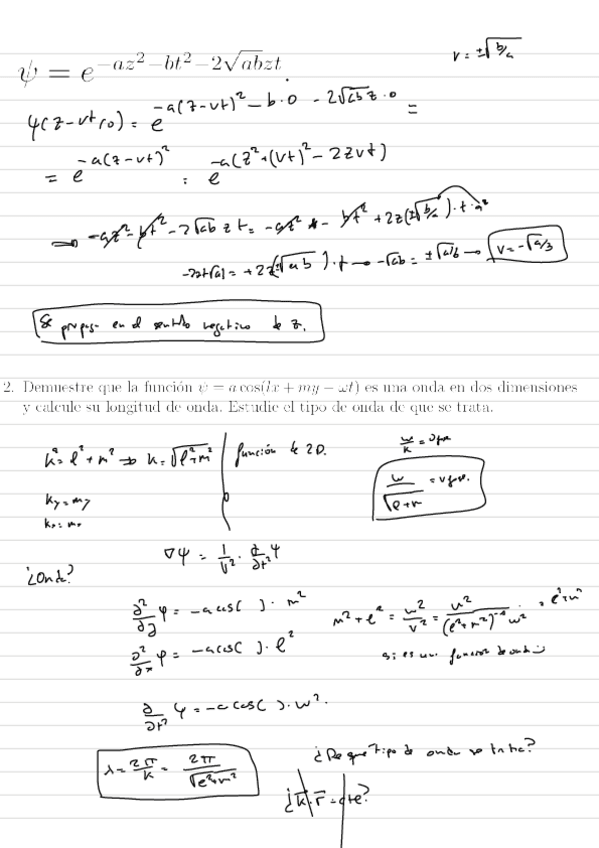 v = ±√(b/a)
ψ = e^{-az² - bt² - 2√(ab)zt}.
ψ(z-vt, 0) = e^{-a(z-vt)² - b·0 - 2√(ab) z·0} =
= e^{-a(z-vt)²} = e^{-a(z²+(vt)² - 2zvt)}
-az² - bt² - 2√(ab) zt = -az² - bt² + 2z(±√(b/a))·t·a
Se propaga en el sentido negativo de z.
2. Demuestre que la función ψ = a cos(lx + my − ωt) es una onda en dos dimensiones
y calcule su longitud de onda. Estudie el tipo de onda de que se trata.
k² = l² + m² ⇒ k = √(l²+m²) función de 2D.
∇ψ = 1/v² · ∂/∂t² ψ
¿Onda?
ψ = -a cos( )· m²
ψ = -a cos( )· l²
m² + l² = w²/v² =
si es una función de onda
∂/∂t² ψ = -a cos( )· w².
λ = 2π/k = 2π/√(l²+m²)
¿De qué tipo de onda se trata?
¿k·r = cte?